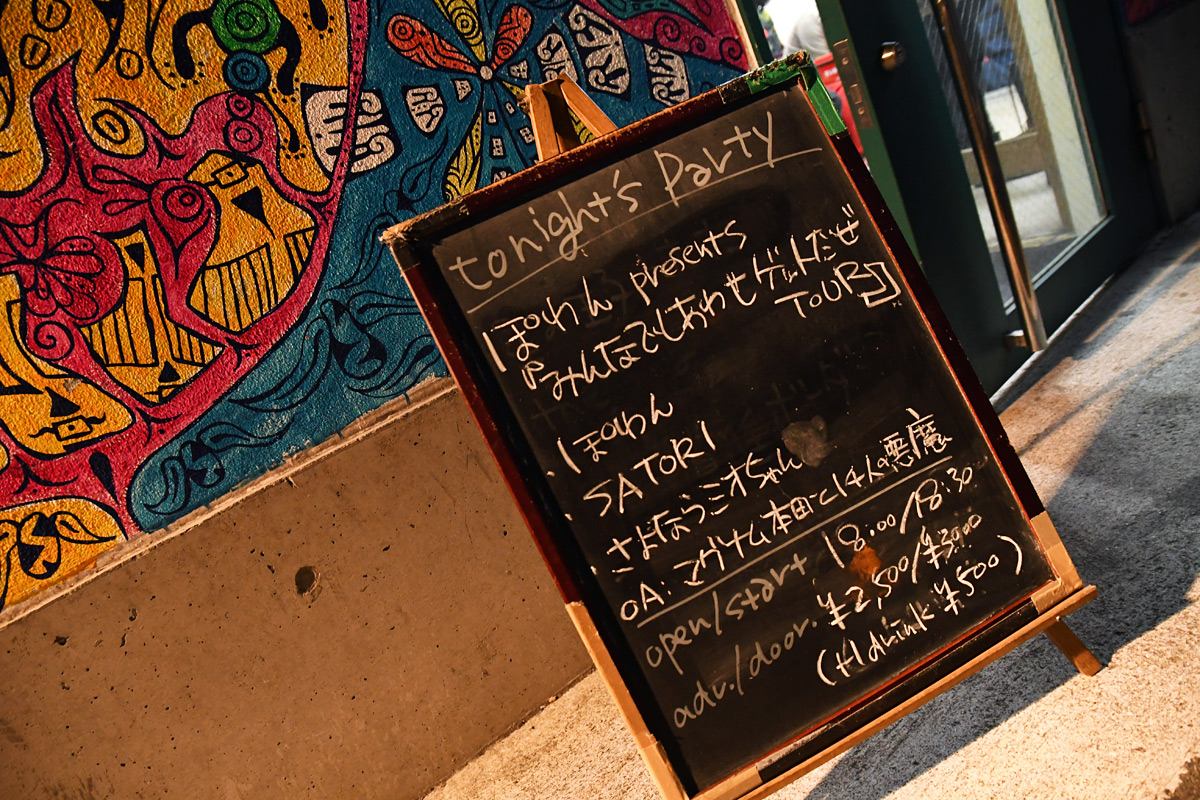 tonight's Party
|ぽわん presents
『みんなでしあわせゲットだぜ
TOUR』
・|ぽわん
・SATORI
・さよなら三才ちゃん
OA:マグナム本田と14人の悪魔
open/start 18:00/18:30
adv./door. ¥2,500/¥3000
(+1drink ¥500)